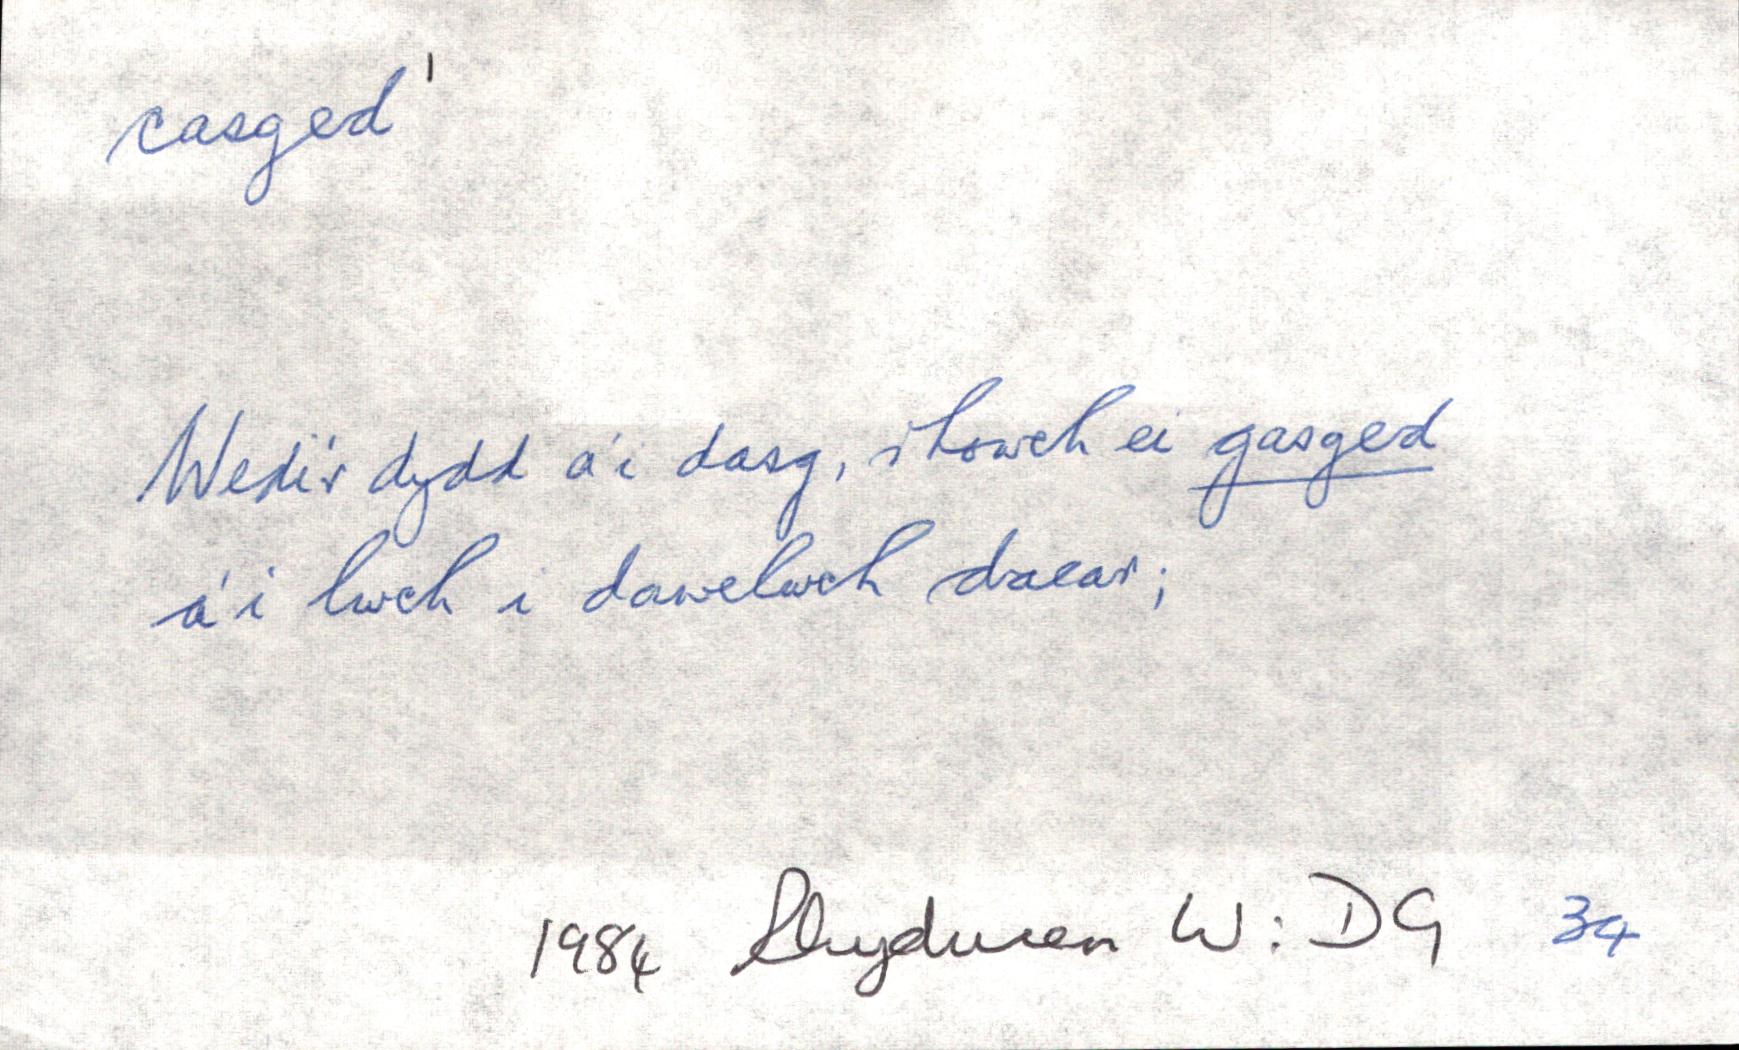 casged¹
Wedi'r dydd a'i dasg, rhowch ei gasged
a'i lwch i dawelwch daear;
1984 Rhydwen W: DG 34